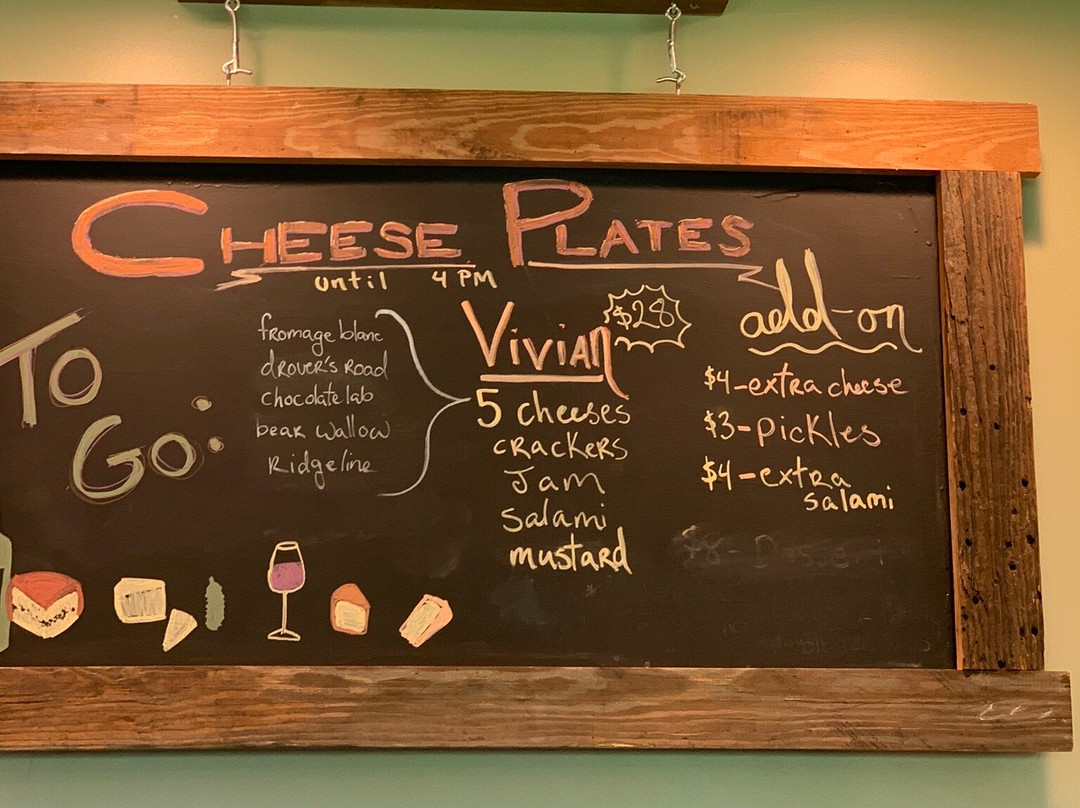 CHEESE PLATES
until 4 PM
To
Go:
fromage blanc
drover's road
chocolate lab
bear wallow
Ridgeline
Vivian
$28
5 cheeses
crackers
Jam
Salami
mustard
add-on
$4-extra cheese
$3-pickles
$4-extra
salami
$8-Dessert